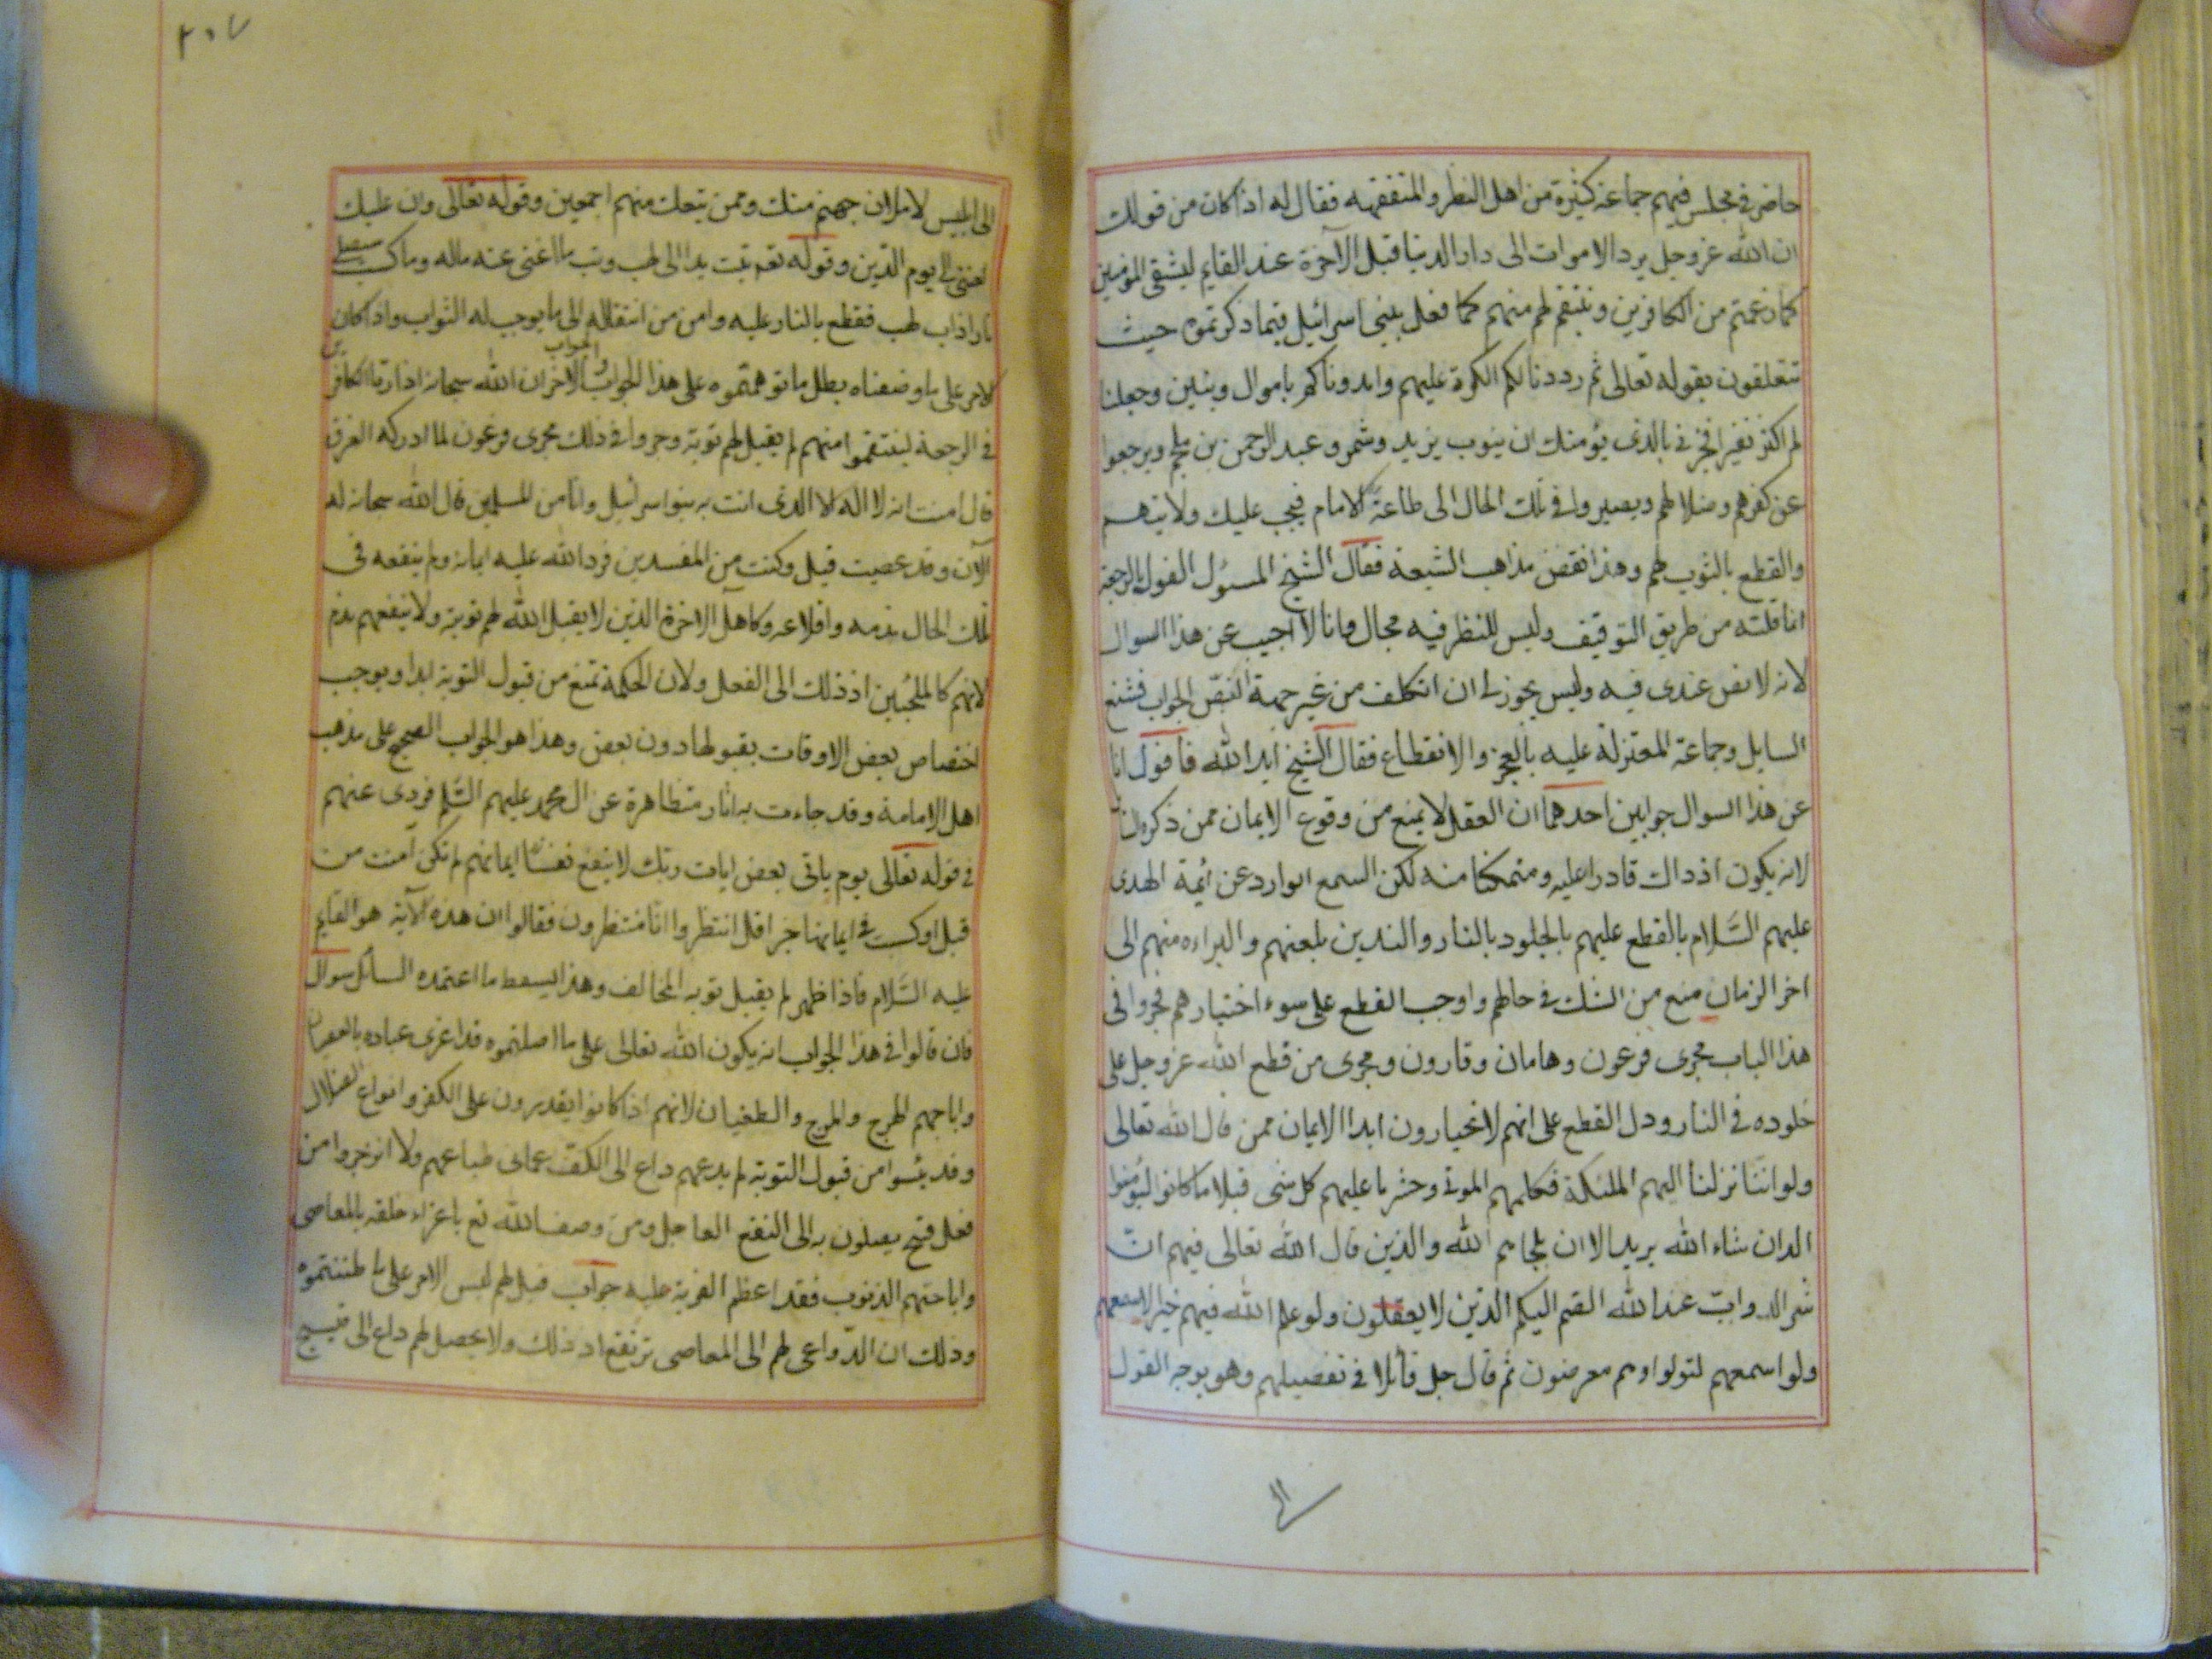 حاضر في مجلس فيهم جماعة كثيرة من اهل النظر والمتفقهه فقال له اذا كان من قولك
ان الله عز وجل يرد الاموات الى دار الدنيا قبل الآخرة عند القايم ليشفى المؤمنين
كما زعمتم من الكافرين وينتقم لهم منهم كما فعل ببنى اسرائيل فيما ذكرتموه حيث
تتعلقون بقوله تعالى ثم رددنا لكم الكرة عليهم وامددناكم باموال وبنين وجعلنا
لم اكثر نفيرا فخبرنى بالذى يؤمنك ان يتوب يزيد وشمر وعبد الرحمن بن ملجم ويرجعوا
عن كفرهم وضلالهم ويصيروا في تلك الحال الى طاعة الامام فيجب عليك ولايتهم
والقطع بالثوب لهم وهذا نقض مذاهب الشيعة فقال الشيخ المسئول القول بالرجعة
انما قلته من طريق التوقيف وليس للنظر فيه مجال وانا لا اجيب عن هذا السوال
لانه لا نص عندى فيه وليس يجوز لى ان اتكلف من غير جهة النص الجواب فشنع
السايل وجماعة المعتزلة عليه بالعجز والانقطاع فقال الشيخ ايد الله فاقول انا
عن هذا السوال جوابين احدهما ان العقل لا يمنع من وقوع الايمان ممن ذكره
لانه يكون اذ ذاك قادرا عليه ومتمكنا منه لكن السمع الوارد عن ائمة الهدى
عليهم السلام بالقطع عليهم بالخلود بالنار والتدين بلعنهم والبراءه منهم الى
اخر الزمان منع من الشك في حالهم واوجب القطع على سوء اختيارهم فجروا في
هذا الباب مجرى فرعون وهامان وقارون ومجرى من قطع الله عز وجل على
خلوده في النار ودل القطع على انهم لا يختارون ابدا الايمان ممن قال الله تعالى
ولو اننا نزلنا اليهم الملئكة فكلمهم الموتى وحشرنا عليهم كل شى قبلا ما كانوا ليؤمنوا
الا ان شاء الله يريد الا ان يلجاهم الله والذين قال الله تعالى فيهم ان
شر الدواب عند الله الصم البكم الذين لا يعقلون ولو علم الله فيهم خيرا لاسمعهم
ولو اسمعهم لتولوا وهم معرضون ثم قال جل قائلا في تفصيلهم وهو يوجه القول
٢٠٧
الى ابليس لاملان جهنم منك وممن تبعك منهم اجمعين وقوله تعالى وان عليك
لعنتى الى يوم الدين وقوله تعم تبت يدا ابى لهب وتب ما اغنى عنه ماله وما كسب سيصلى
نارا ذات لهب فقطع بالنار عليه وامن من انتقاله الى ما يوجب له الثواب واذا كان
الامر على ما وصفناه بطل ما توهمتموه على هذا الجواب والجواب الاخر ان الله سبحانه اذا رد الكافرين
في الرجعة لينتقموا منهم لم يقبل لهم توبة وجروا في ذلك مجرى فرعون لما ادركه الغرق
قال امنت انه لا اله الا الذى امنت به بنوا اسرائيل وانا من المسلمين قال الله سبحانه له
الآن وقد عصيت قبل وكنت من المفسدين فرد الله عليه ايمانه ولم ينفعه في
تلك الحال ندمه واقلاعه وكاهل الاخرة الذين لا يقبل الله لهم توبة ولا ينفعهم ندم
لانهم كالملجئين اذ ذلك الى الفعل ولان الحكمة تمنع من قبول التوبة ابدا ويوجب
اختصاص بعض الاوقات بقبولها دون بعض وهذا هو الجواب الصحيح على مذهب
اهل الامامة وقد جاءت به اثار متظاهرة عن ال محمد عليهم السلم فروى عنهم
في قوله تعالى يوم ياتى بعض ايات ربك لا ينفع نفسا ايمانهم لم تكن آمنت من
قبل او كسبت في ايمانها خيرا قل انتظروا انا منتظرون فقالوا ان هذه الآية هو القايم
عليه السلام فاذا ظهر لم يقبل توبه المخالف وهذا يسقط ما اعتمده السائل سوال
فان قالوا في هذا الجواب انه يكون الله تعالى على ما اصلتموه قد اغرى عباده بالعصيان
واباحهم الهرج والمرج والطغيان لانهم اذا كانوا يقدرون على الكفر وانواع الضلال
وقد يئسوا من قبول التوبة لم يدعهم داع الى الكف عما في طباعهم ولا انزجروا من
فعل قبيح يصلون به الى النفع العاجل ومن وصف الله تع باغراء خلقه بالمعاصى
واباحتهم الذنوب فقد اعظم الفرية عليه جواب قيل لهم ليس الامر على ما ظننتموه
وذلك ان الدواعى لهم الى المعاصى ترتفع اذ ذلك ولا يحصل لهم داع الى قبيح